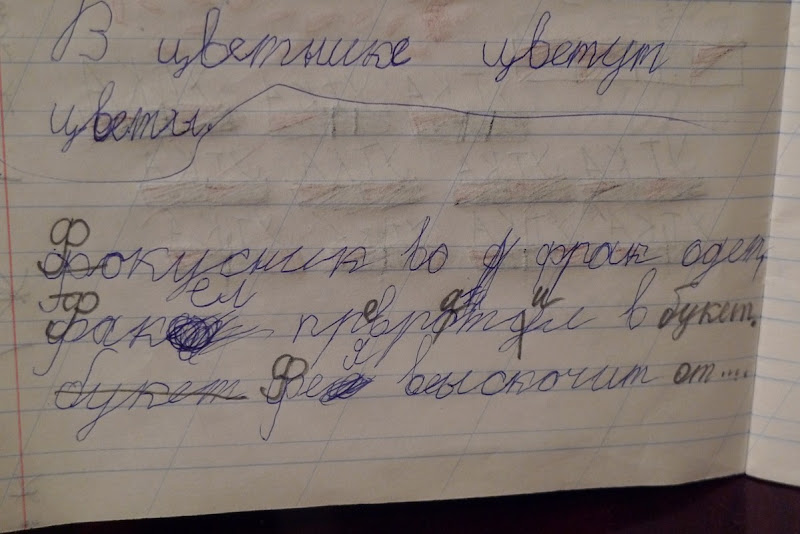 В цветнике цветут
цветы.
Фокусник во фрак одет,
Факел превратил в букет.
букет Фея выскочит от....